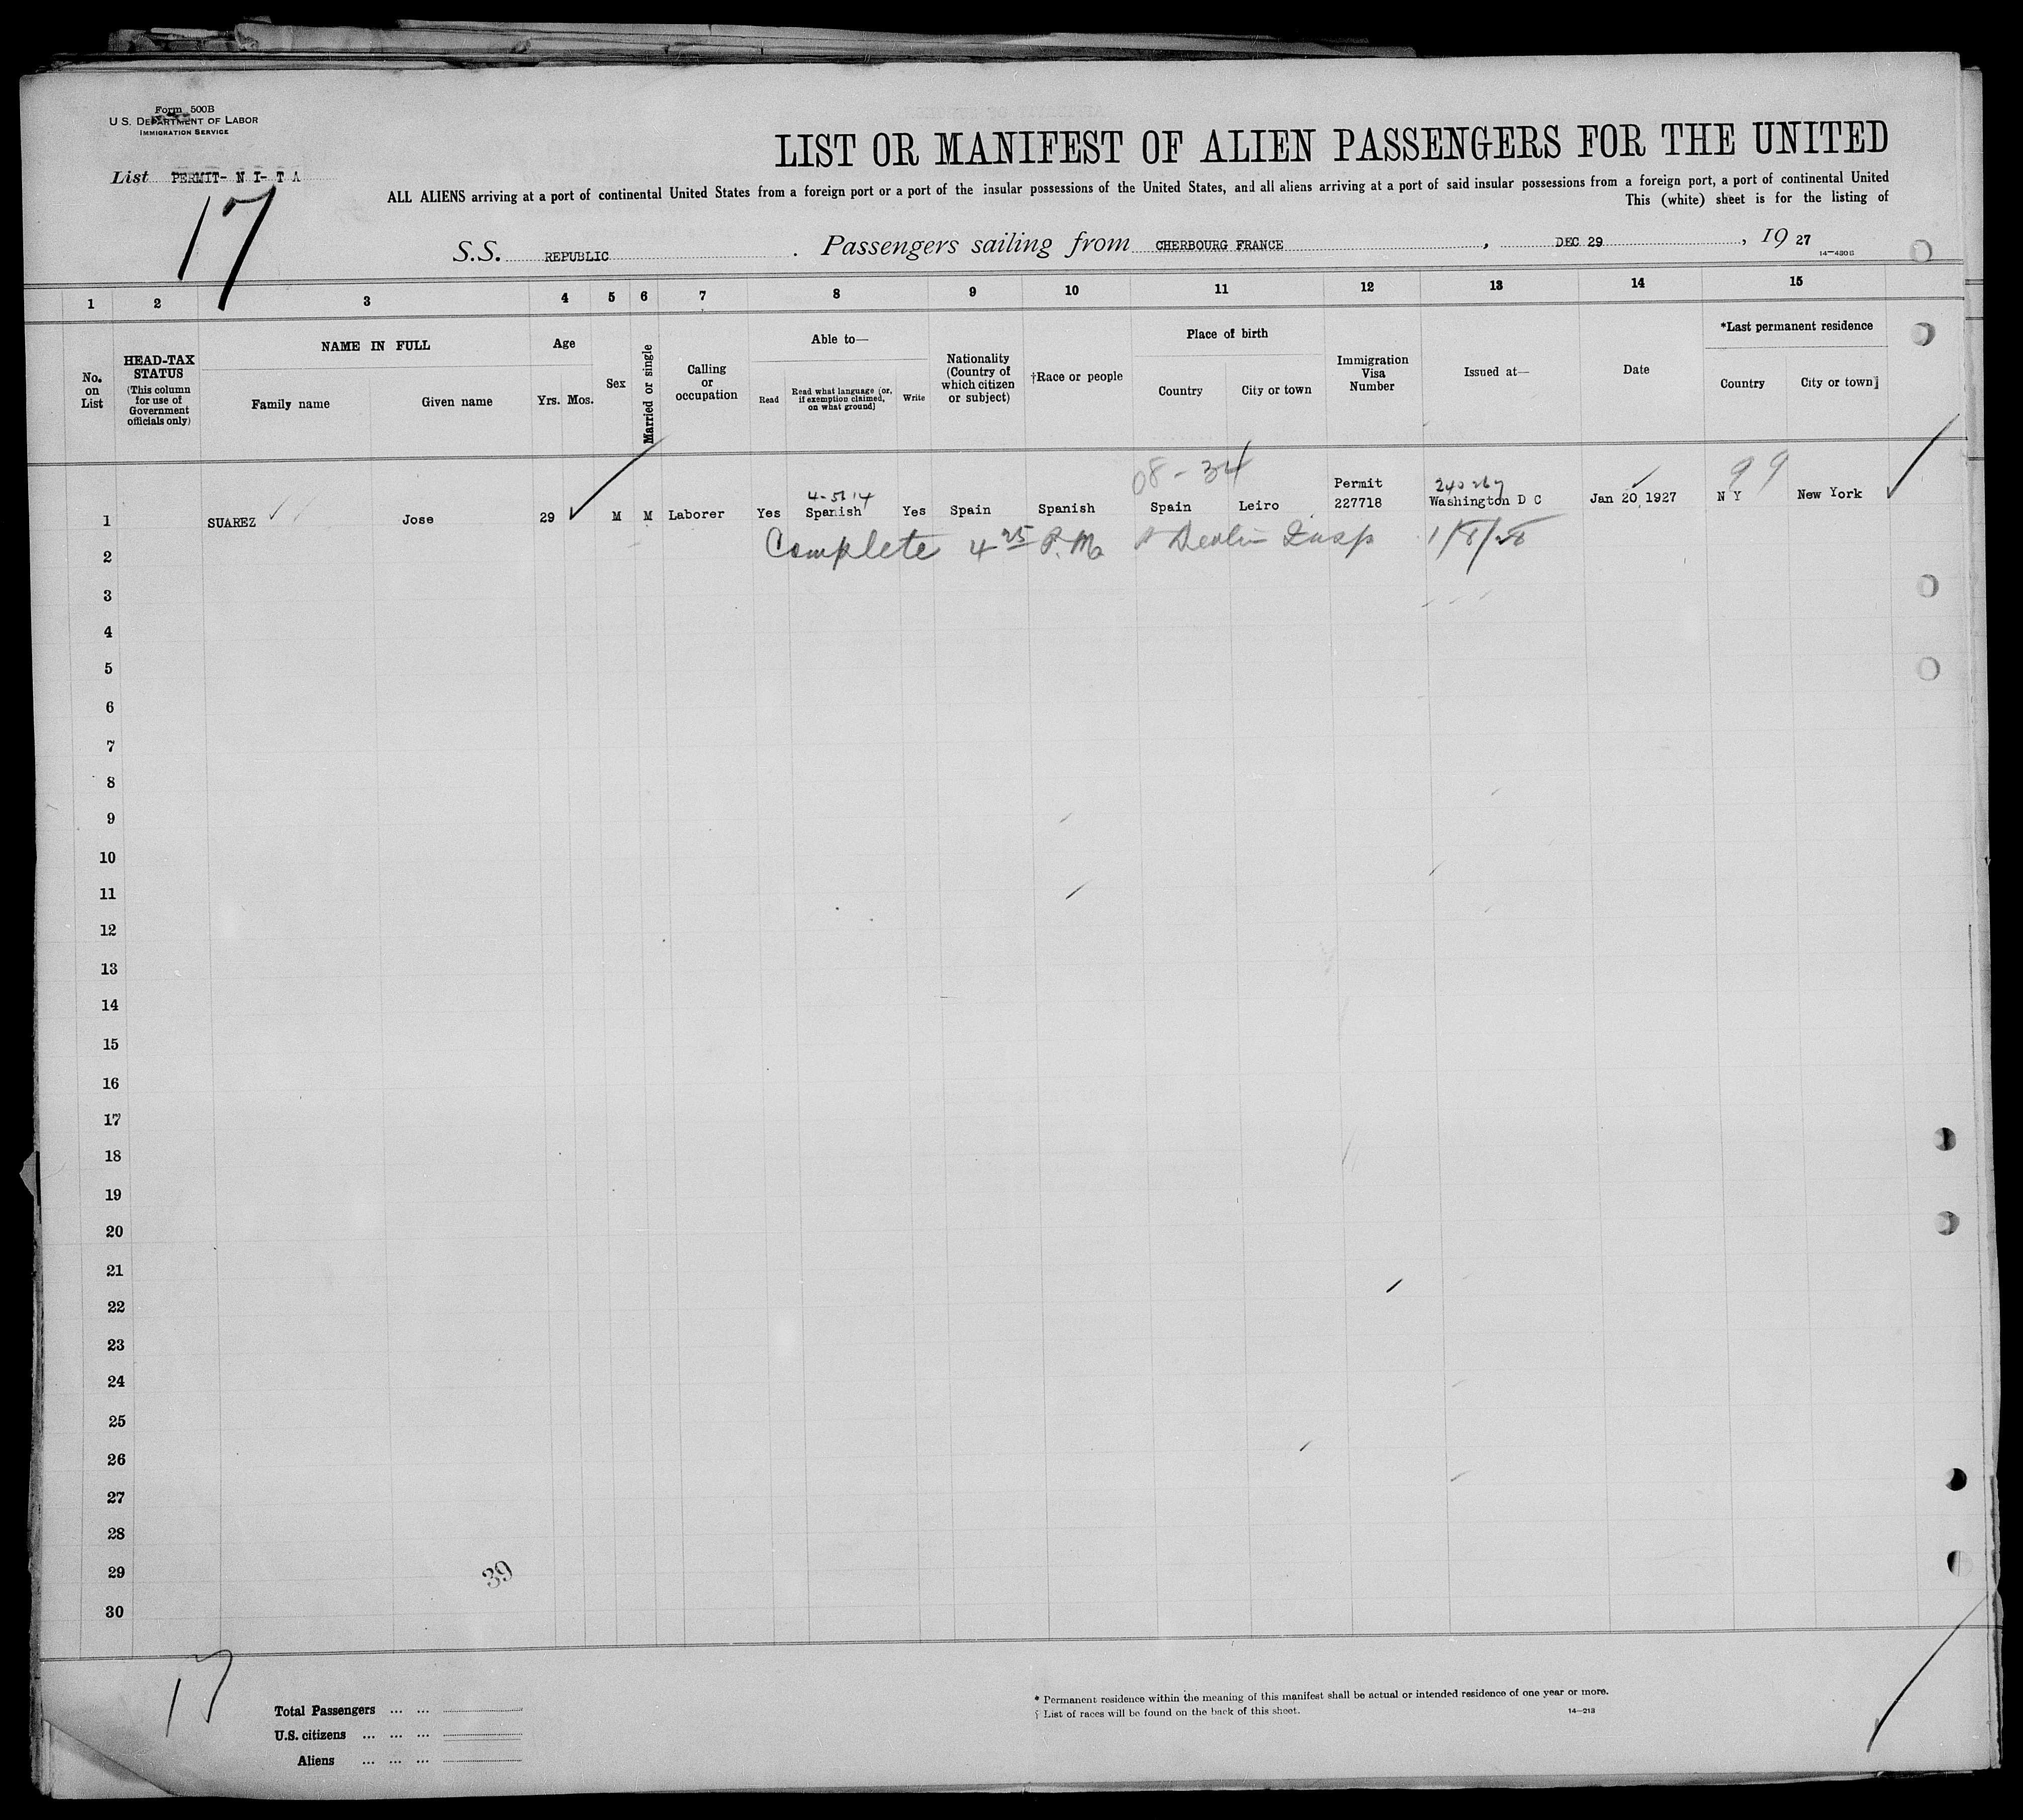 Form 500B
U. S. DEPARTMENT OF LABOR
IMMIGRATION SERVICE
List PERMIT- N I- T A
17
LIST OR MANIFEST OF ALIEN PASSENGERS FOR THE UNITED
ALL ALIENS arriving at a port of continental United States from a foreign port or a port of the insular possessions of the United States, and all aliens arriving at a port of said insular possessions from a foreign port, a port of continental United
This (white) sheet is for the listing of
S.S. REPUBLIC . Passengers sailing from CHERBOURG FRANCE , DEC 29 , 19 27
14—430B
1 2 3 4 5 6 7 8 9 10 11 12 13 14 15
No. on List
HEAD-TAX STATUS (This column for use of Government officials only)
NAME IN FULL
Family name Given name
Age
Yrs. Mos.
Sex
Married or single
Calling or occupation
Able to—
Read Read what language (or, if exemption claimed, on what ground) Write
Nationality (Country of which citizen or subject)
†Race or people
Place of birth
Country City or town
Immigration Visa Number
Issued at—
Date
*Last permanent residence
Country City or town
08-34 99
4-5614 Permit 240267
1 SUAREZ Jose 29 M M Laborer Yes Spanish Yes Spain Spanish Spain Leiro 227718 Washington D C Jan 20 1927 N Y New York
2 Complete 4 25 P.M. Devlin Insp 1/8/28
3
4
5
6
7
8
9
10
11
12
13
14
15
16
17
18
19
20
21
22
23
24
25
26
27
28
29
39
30
17
Total Passengers ... ...
U.S. citizens ... ... ...
Aliens ... ... ...
* Permanent residence within the meaning of this manifest shall be actual or intended residence of one year or more.
† List of races will be found on the back of this sheet.
14—213